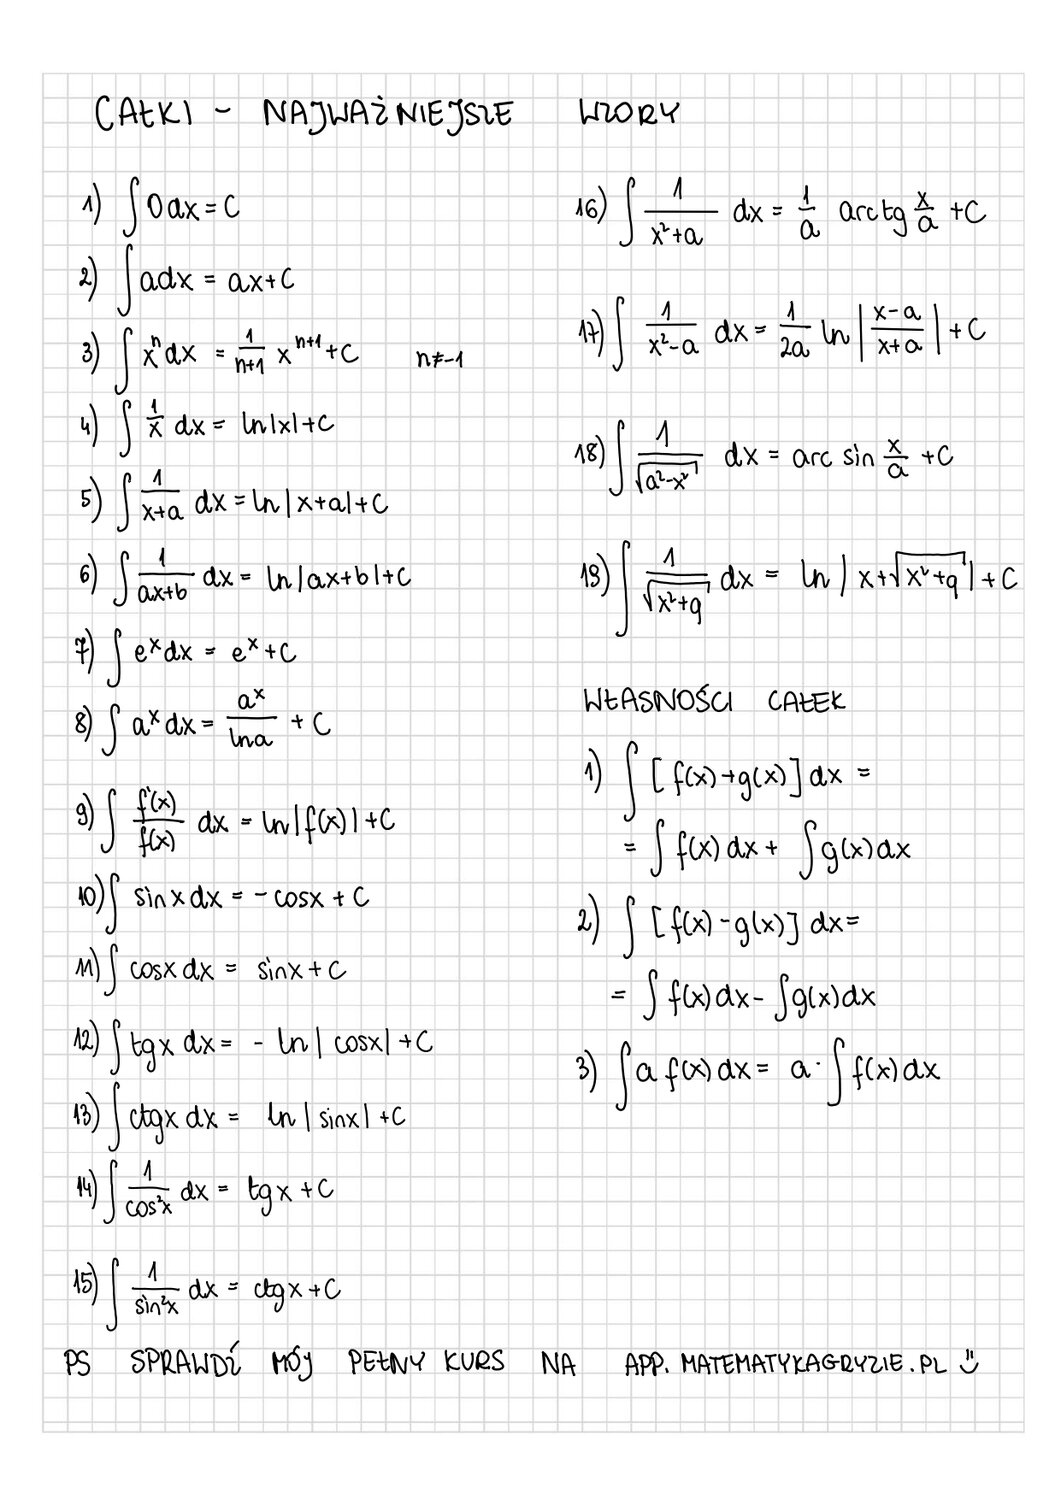 CAŁKI - NAJWAŻNIEJSZE WZORY
1) ∫ 0 dx = C
2) ∫ a dx = ax + C
3) ∫ xⁿ dx = 1/(n+1) xⁿ⁺¹ + C n≠-1
4) ∫ 1/x dx = ln|x| + C
5) ∫ 1/(x+a) dx = ln|x+a| + C
6) ∫ 1/(ax+b) dx = ln|ax+b| + C
7) ∫ eˣ dx = eˣ + C
8) ∫ aˣ dx = aˣ/ln a + C
9) ∫ f'(x)/f(x) dx = ln|f(x)| + C
10) ∫ sin x dx = - cos x + C
11) ∫ cos x dx = sin x + C
12) ∫ tg x dx = - ln|cos x| + C
13) ∫ ctg x dx = ln|sin x| + C
14) ∫ 1/cos²x dx = tg x + C
15) ∫ 1/sin²x dx = ctg x + C
16) ∫ 1/(x²+a) dx = 1/a arctg x/a + C
17) ∫ 1/(x²-a) dx = 1/2a ln |(x-a)/(x+a)| + C
18) ∫ 1/√(a²-x²) dx = arc sin x/a + C
19) ∫ 1/√(x²+q) dx = ln |x+√(x²+q)| + C
WŁASNOŚCI CAŁEK
1) ∫ [f(x)+g(x)] dx =
= ∫ f(x) dx + ∫ g(x) dx
2) ∫ [f(x)-g(x)] dx =
= ∫ f(x) dx - ∫ g(x) dx
3) ∫ a f(x) dx = a · ∫ f(x) dx
PS SPRAWDŹ MÓJ PEŁNY KURS NA APP.MATEMATYKAGRYZIE.PL ☺